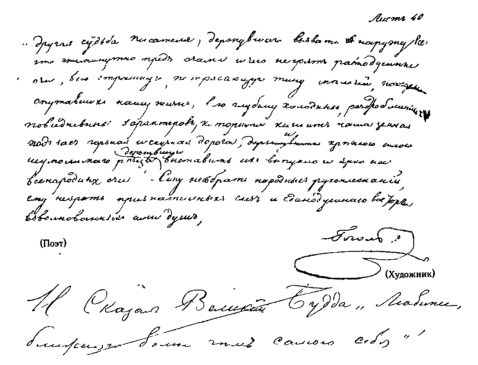 Листъ 40
„другая судьба писателя, дерзнувшаго вызвать наружу все
что ежеминутно предъ очами и чего не зрятъ равнодушные
очи, всю страшную, потрясающую тину мелочей,
опутавшихъ нашу жизнь, всю глубину холодныхъ, раздробленныхъ
повседневныхъ характеровъ, которыми кишитъ наша земная
подъ часъ горькая и скучная дорога, и крѣпкою силою
неумолимаго рѣзца дерзнувшаго выставить ихъ выпукло и ярко на
всенародныя очи! — Ему не собрать народныхъ рукоплесканій,
ему не зрѣть признательныхъ слезъ и единодушнаго восторга
взволнованныхъ имъ душъ,
(Поэт)
Гоголь
(Художник)
И Сказал Великий Будда „Любите,
ближняго более чемъ самого себя"!